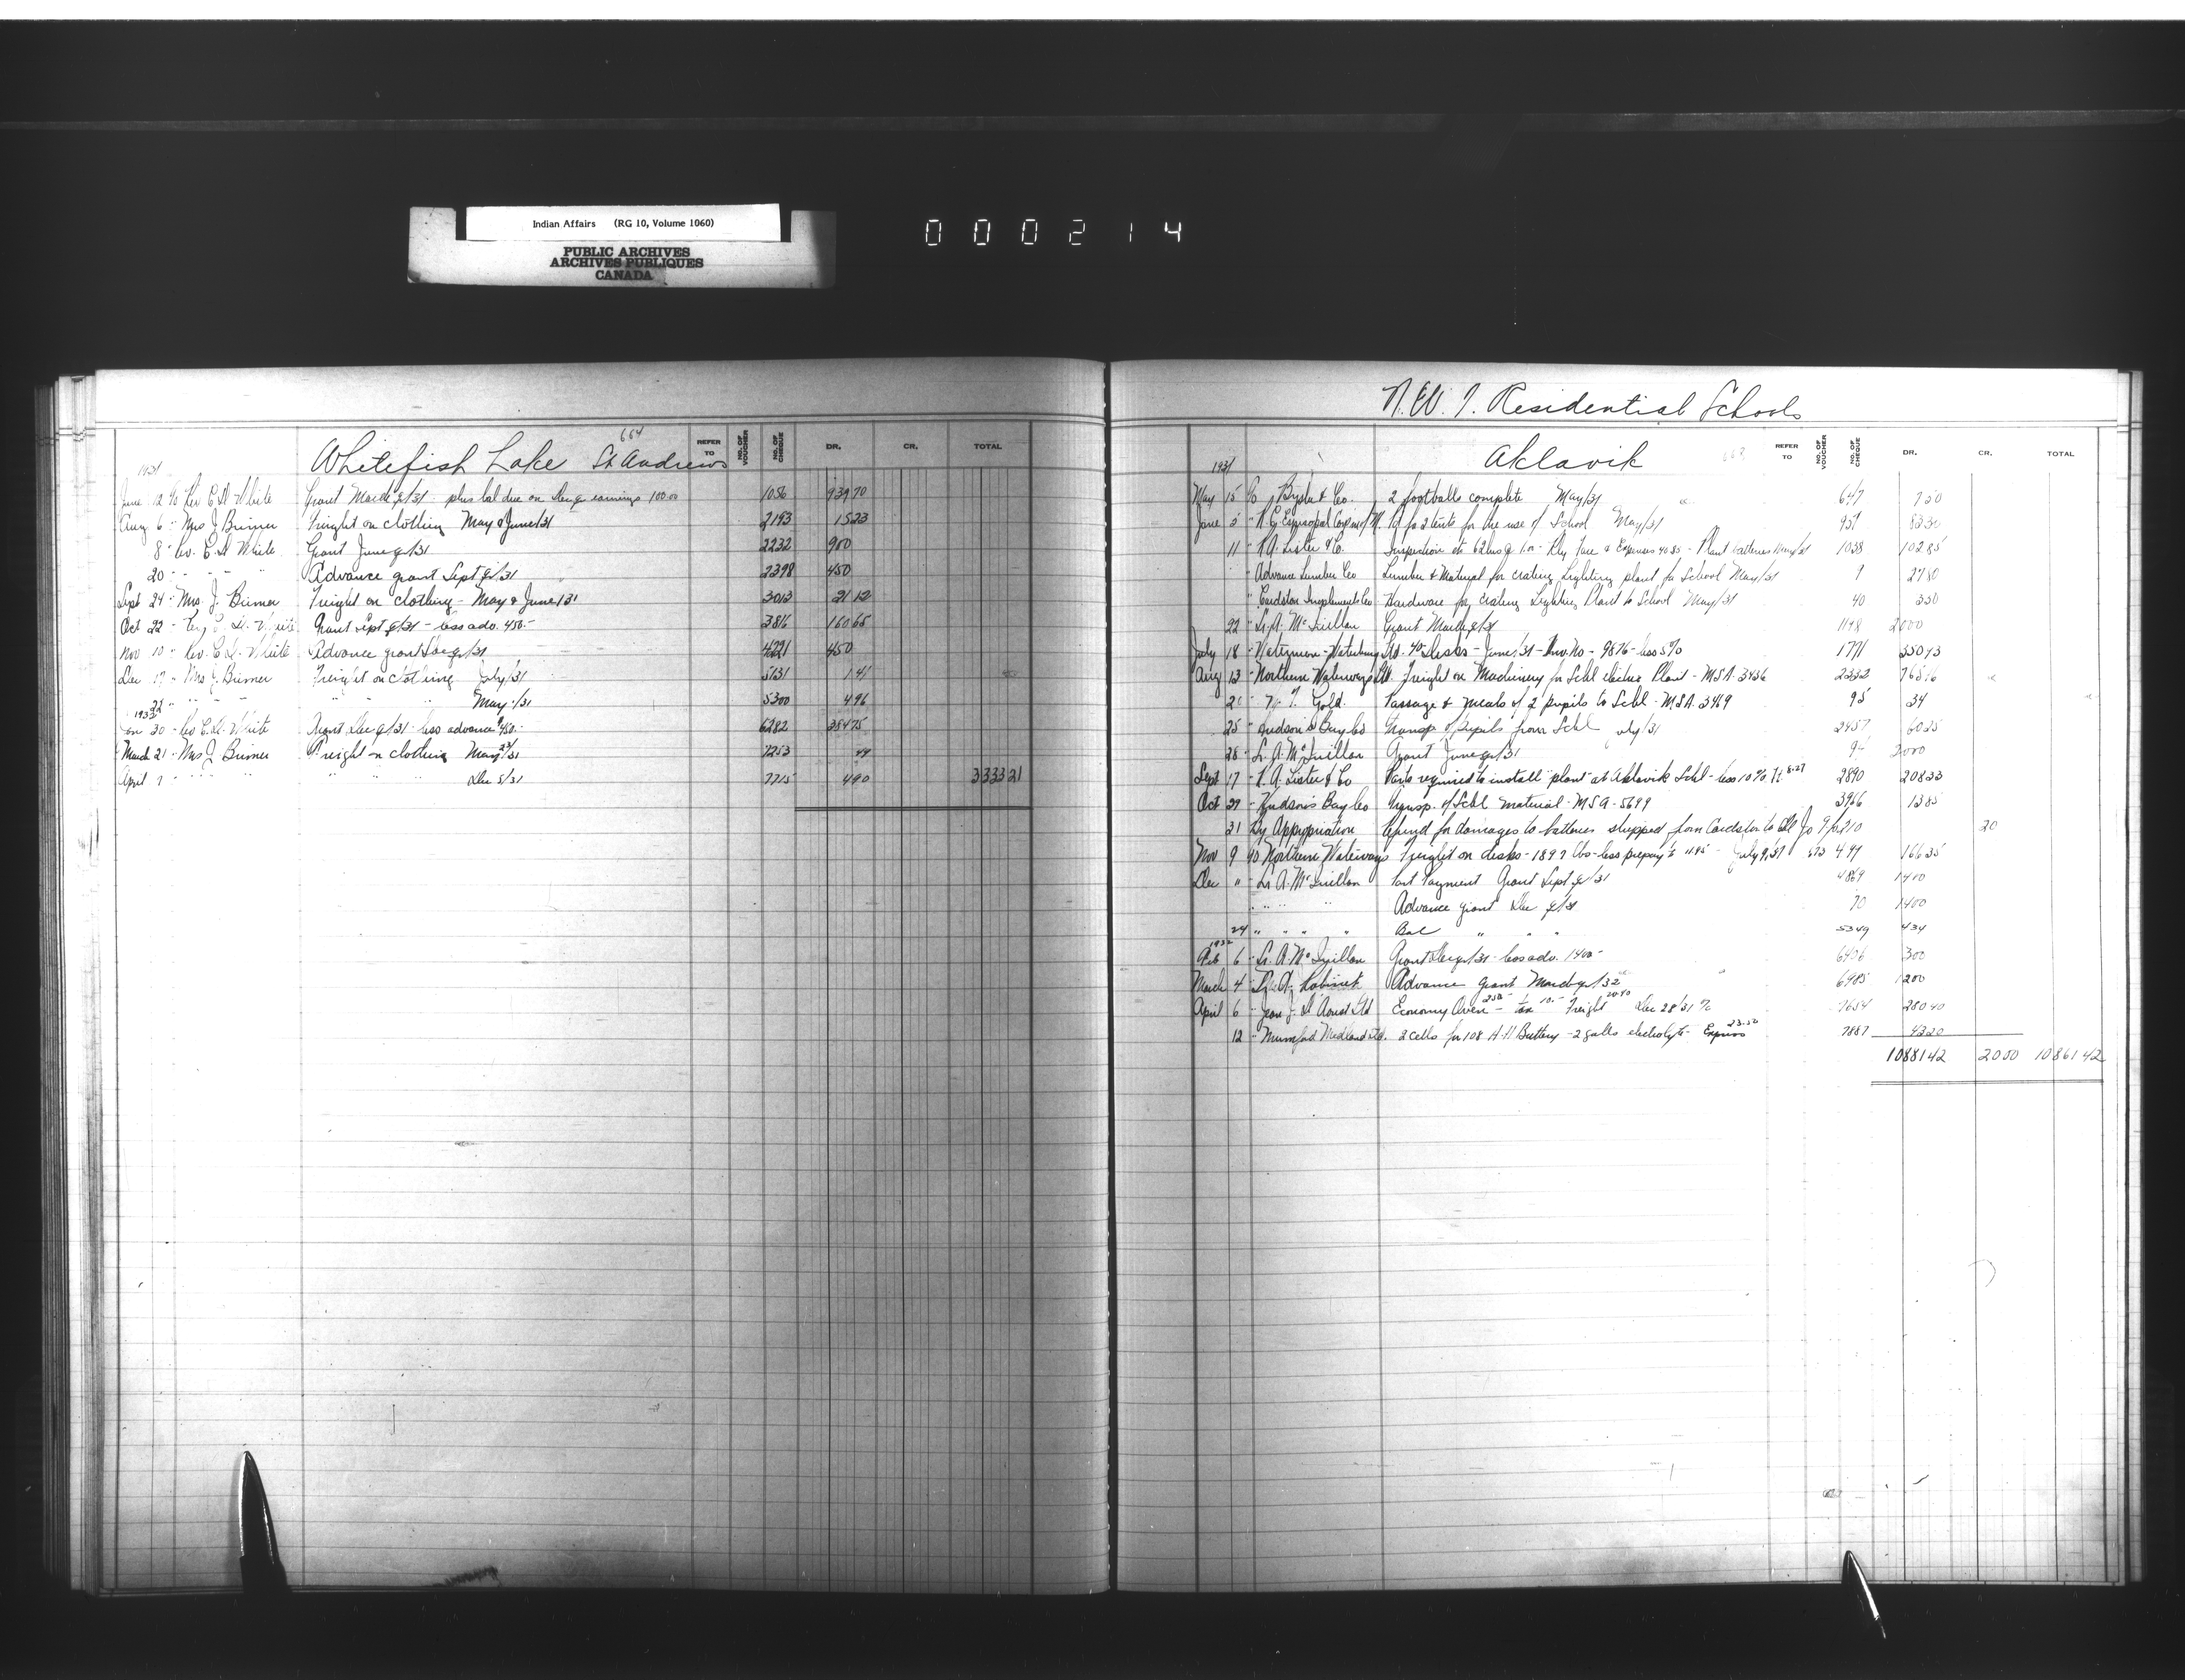 Indian Affairs (RG 10, Volume 1060)
PUBLIC ARCHIVES
ARCHIVES PUBLIQUES
CANADA
000214
664
Whitefish Lake St Andrews
REFER TO NO. OF VOUCHER NO. OF CHEQUE DR. CR. TOTAL
1931
June 12 To Rev C.H. White Grant March qr/31 plus bal due on Dec qr earnings 100.00 1056 939 70
Aug 6 - Mrs J Birmer Freight on clothing May & June/31 2193 15 23
8 - Rev. C.H. White Grant June qr/31 2232 900
20 - " " " Advance grant Sept qr/31 2398 450
Sept 24 - Mrs. J. Birmer Freight on clothing - May & June/31 3013 21 12
Oct 22 - Rev C. H. White Grant Sept qr/31 - less adv. 450.- 3816 160 65
Nov 10 - Rev. C.H. White Advance grant Dec qr/31 4221 450
Dec 17 - Mrs J. Birmer Freight on clothing July/31 5131 1 41
22 - " " " May /31 5300 4 96
1932
Jan 30 - Rev C.H. White Grant Dec qr/31 - less advance $450.- 6282 384 75
March 21 - Mrs J Birmer Freight on clothing May 29/31 7253 49
April 7 - " " " " " " Dec 5/31 7715 4 90 3333 21
N.W.T. Residential Schools
Aklavik
REFER TO NO. OF VOUCHER NO. OF CHEQUE DR. CR. TOTAL
1931
May 15 To & Co. 2 footballs complete May/31 647 7 50
June 5 - R.C. Episcopal Corp'n of to fo 2 tents for the use of School May/31 957 83 30
11 - R.A. Lister & Co. Inspection etc 62 hrs @ 1.00 - Rly Fare & Expenses 40.85 - Plant batteries May/31 1038 102 85
Advance Lumber Co Lumber & Material for crating Lighting plant for School May/31 9 27 80
" Cardston Implements Co Hardware for crating Lighting Plant to School May/31 40 3 50
22 - L.A. McQuillan Grant March qr/31 1198 2000
July 18 - Waterman-Waterbury Ltd. 40 Desks - June/31 - Inv. No - 9876 - less 5% 1771 350 73
Aug 13 - Northern Waterways Ltd. Freight on Machinery for Schl electric Plant - MSA-3436 2332 765 16
Gold. Passage & Meals of 2 pupils to Schl - MSA 3469 95 34
25 - Hudson's Bay Co Transp of Pupils from Schl July/31 2457 60 25
28 - L.A. McQuillan Grant June qr/31 2000
Sept 17 - R.A. Lister & Co Parts required to install plant at Aklavik Schl - less 10% 2890 208 33
Oct 27 - Hudson's Bay Co Transp. of Schl material - MSA - 5699 3966 13 85
31 By Appropriation Refund for damages to batteries shipped from Cardston to Schl 20
Nov 9 To Northern Waterways Freight on desks - 1897 lbs - less prepay't 11.95 - July 9/31 166 35
Dec " - L.A. McQuillan Part Payment Grant Sept qr/31 4869 1400
" " " " Advance grant Dec qr/31 70 1400
24 " " " " Bal " " " 5349 434
1932
Feb 6 - L.A. McQuillan Grant Dec qr/31 - less adv. 1400 - 6406 300
March 4 - Advance grant March qr/32 6985 1200
April 6 - Economy Oven - 250 - tax 10.- Freight 20.40 Dec 28/31 7654 280 40
12 - Mumford Medland Ltd. 2 cells for 108 A.H Battery - 2 galls electrolyte - Express 23.20 7887 43 20
10881 42 20 00 10861 42